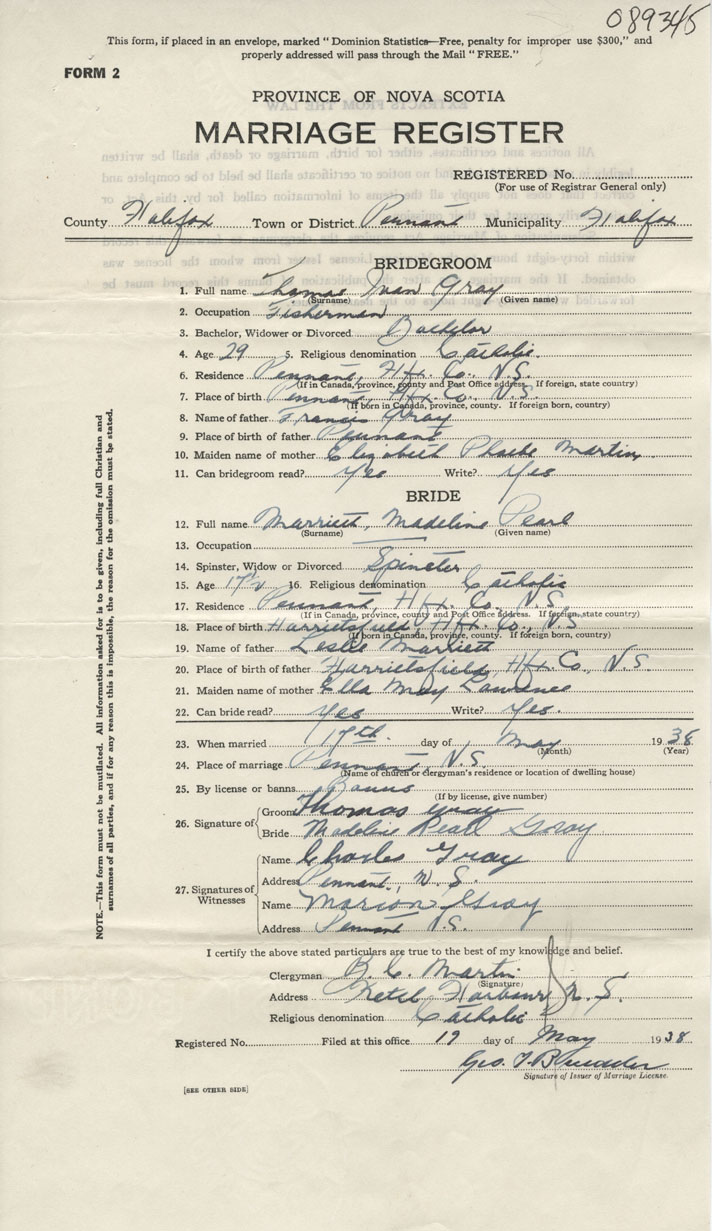 089345
This form, if placed in an envelope, marked "Dominion Statistics—Free, penalty for improper use $300," and
properly addressed will pass through the Mail "FREE."
FORM 2
PROVINCE OF NOVA SCOTIA
MARRIAGE REGISTER
REGISTERED No.
(For use of Registrar General only)
County Halifax Town or District Pennant Municipality Halifax
BRIDEGROOM
1. Full name Thomas Ivan Gray
(Surname) (Given name)
2. Occupation Fisherman
3. Bachelor, Widower or Divorced Bachelor
4. Age 29 5. Religious denomination Catholic.
6. Residence Pennant, Hfx. Co., N.S.
(If in Canada, province, county and Post Office address. If foreign, state country)
7. Place of birth Pennant, Hfx. Co. N.S.
(If born in Canada, province, county. If foreign born, country)
8. Name of father Francis Gray
9. Place of birth of father Pennant
10. Maiden name of mother Elizabeth Phoebe Martin
11. Can bridegroom read? Yes Write? Yes
BRIDE
12. Full name Marrieth, Madeline Pearl
(Surname) (Given name)
13. Occupation
14. Spinster, Widow or Divorced Spinster
15. Age 17½ 16. Religious denomination Catholic
17. Residence Pennant, Hfx. Co., N.S.
(If in Canada, province, county and Post Office address. If foreign, state country)
18. Place of birth Harrietsfield, Hfx. Co., N.S
(If born in Canada, province, county. If foreign born, country)
19. Name of father Leslie Marrieth
20. Place of birth of father Harrietsfield, Hfx. Co., N.S.
21. Maiden name of mother Ella May Lawrence
22. Can bride read? Yes Write? Yes.
23. When married 17th day of May 1938
(Month) (Year)
24. Place of marriage Pennant, N.S.
(Name of church or clergyman's residence or location of dwelling house)
25. By license or banns Banns
(If by license, give number)
26. Signature of
Groom Thomas Gray
Bride Madeline Pearl Gray
27. Signatures of Witnesses
Name Charles Gray
Address Pennant, N.S.
Name Marion Gray
Address Pennant N.S.
I certify the above stated particulars are true to the best of my knowledge and belief.
Clergyman B. C. Martin
(Signature)
Address Ketch Harbour, N.S.
Religious denomination Catholic
Registered No. Filed at this office 19 day of May 1938
Geo. T.
Signature of Issuer of Marriage License.
[SEE OTHER SIDE]
NOTE.—This form must not be mutilated. All information asked for is to be given, including full Christian and
surnames of all parties, and if for any reason this is impossible, the reason for the omission must be stated.